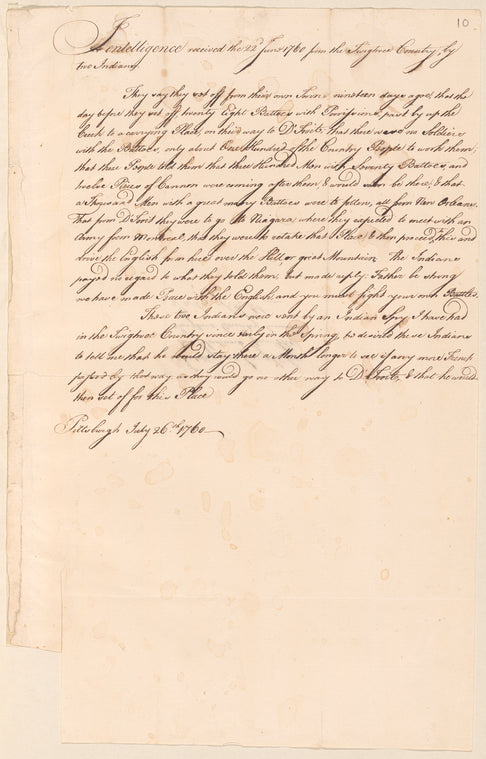 10
Intelligence received the 22d June 1760 from the Twigtwee Country, by
two Indians.
They say they set off from their own Town nineteen days agoe, that the
day before they set off twenty Eight Battoes with Provisions, past by up the
Creek to a carrying Place, on their way to D'Troit, that there was no Soldiers
with the Battoes, only about One Hundred of the Country People to work them,
that these People told them that three Hundred Men with Seventy Battoes, and
twelve Pieces of Cannon were coming after them, & would soon be there, & that
a Thousand Men with a great many Battoes were to follow, all from New Orleans.
That from D'Troit they were to go to Niagara, where they expected to meet with an
Army from Montreal, that they were to retake that Place, & then proceed to this and
drive the English from hence over the Hill or great Mountain. The Indians
payed no regard to what they told them, but made reply Father be strong
we have made Peace with the English, and you must fight your own Battles.
These two Indians were sent by an Indian Spy I have had
in the Twigtwee Country since early in the Spring, he desired these Indians
to tell me that he would stay there a Month longer to see if any more French
passed by that way as they could go no other way to D'Troit, & that he would
then set of for this Place
Pittsburgh July 26.th 1760